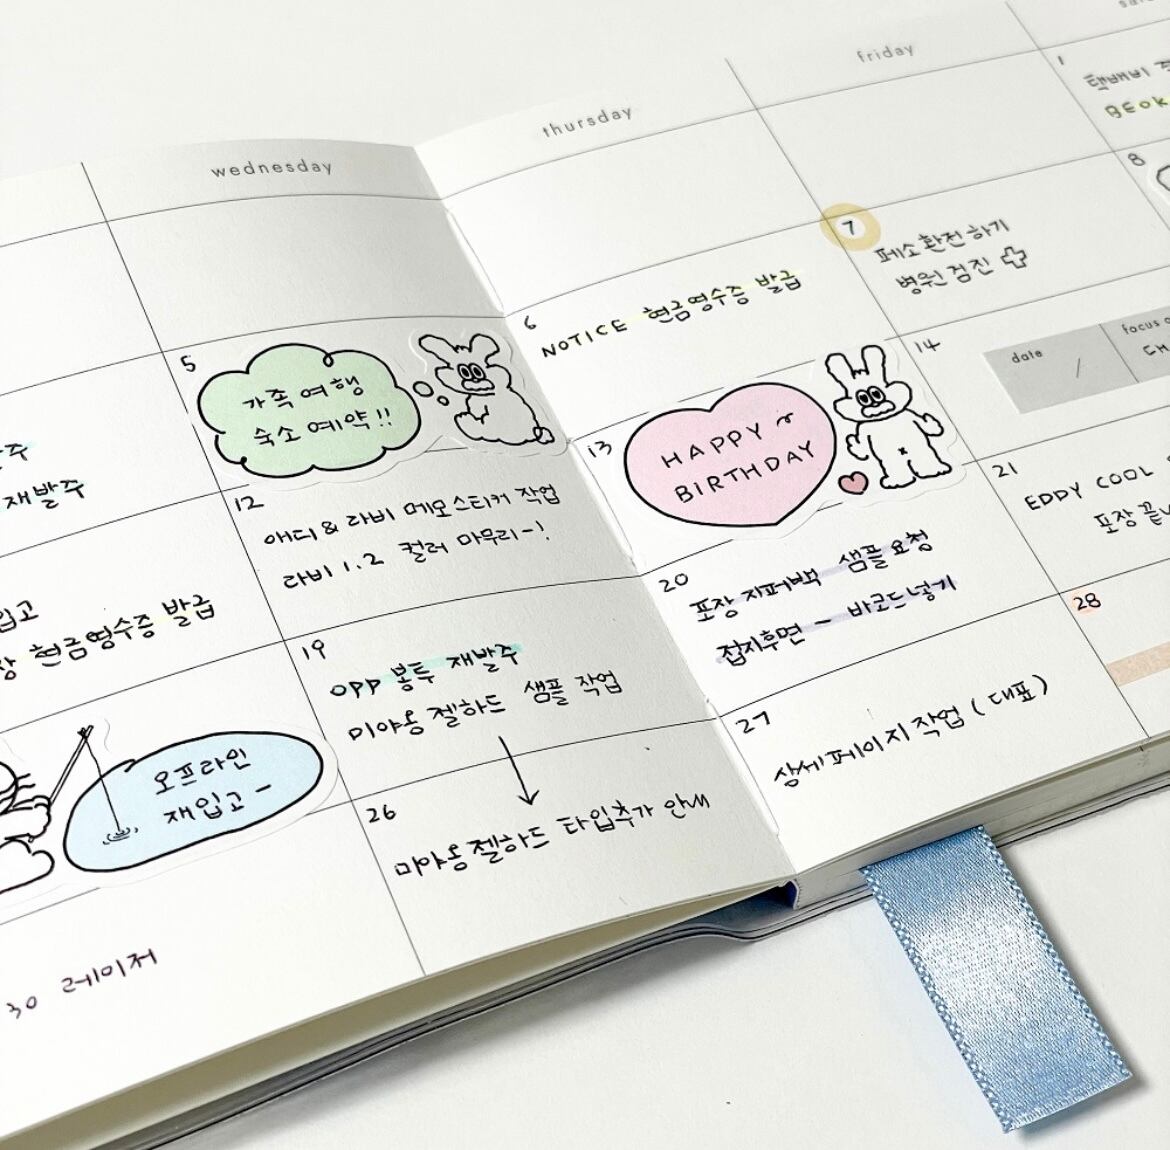 wednesday
thursday
friday
1
택배비
6
NOTICE 현금영수증 발급
7
페소환전하기
병원검진
8
재발주
5
가족여행
숙소예약!!
13
HAPPY
BIRTHDAY
14
date
/
focus
12
애디&라비 메모스티커 작업
라비 1.2 컬러 마무리-!
현금영수증 발급
20
포장 지퍼백 샘플요청
접지후면 - 바코드넣기
21
EDDY COOL
포장
19
OPP 봉투 재발주
미야옹젤하드 샘플 작업
오프라인
재입고 -
27
상세페이지작업 (대표)
28
26
미야옹젤하드 타입추가 안내
30 레이저